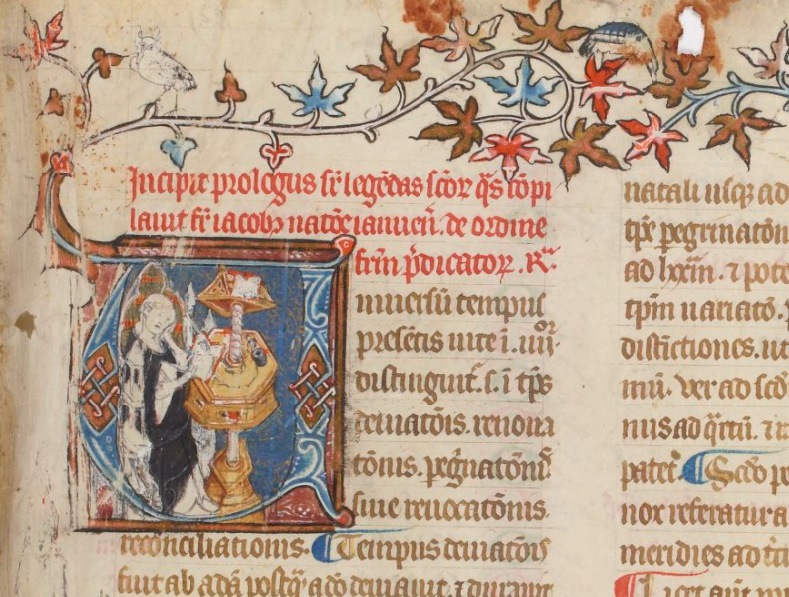 Incipit prologus sr̄ legēdas scōꝝ q̄s cōpi
lauit fr̄ iacobꝰ natōe ianueñ. de ordine
frm̄ p̄dicatoꝝ. Rᵃ.
Uniuersū tempus
presētis uite ī .iiiiᵒʳ
distinguit̄. s. ī tp̄s
deuiatōis. renoua
tōnis. peg̃natōnis
siue reuocatōnis.
reconciliationis. Tempus deuiatōis
fuit ab adā postq̄ a dō deuiauit. ⁊ durauit
natali usq̨ ad
tp̄s pegrinatōn
ad lxxm̄. ⁊ pote
tp̄m uariatō.
distictiones. ut
mū. ver ad scd̄
mus ad q̄rtū. ⁊ r
patet. Scd̄o p
nox referatur a
meridies ad tci
Licet aūt